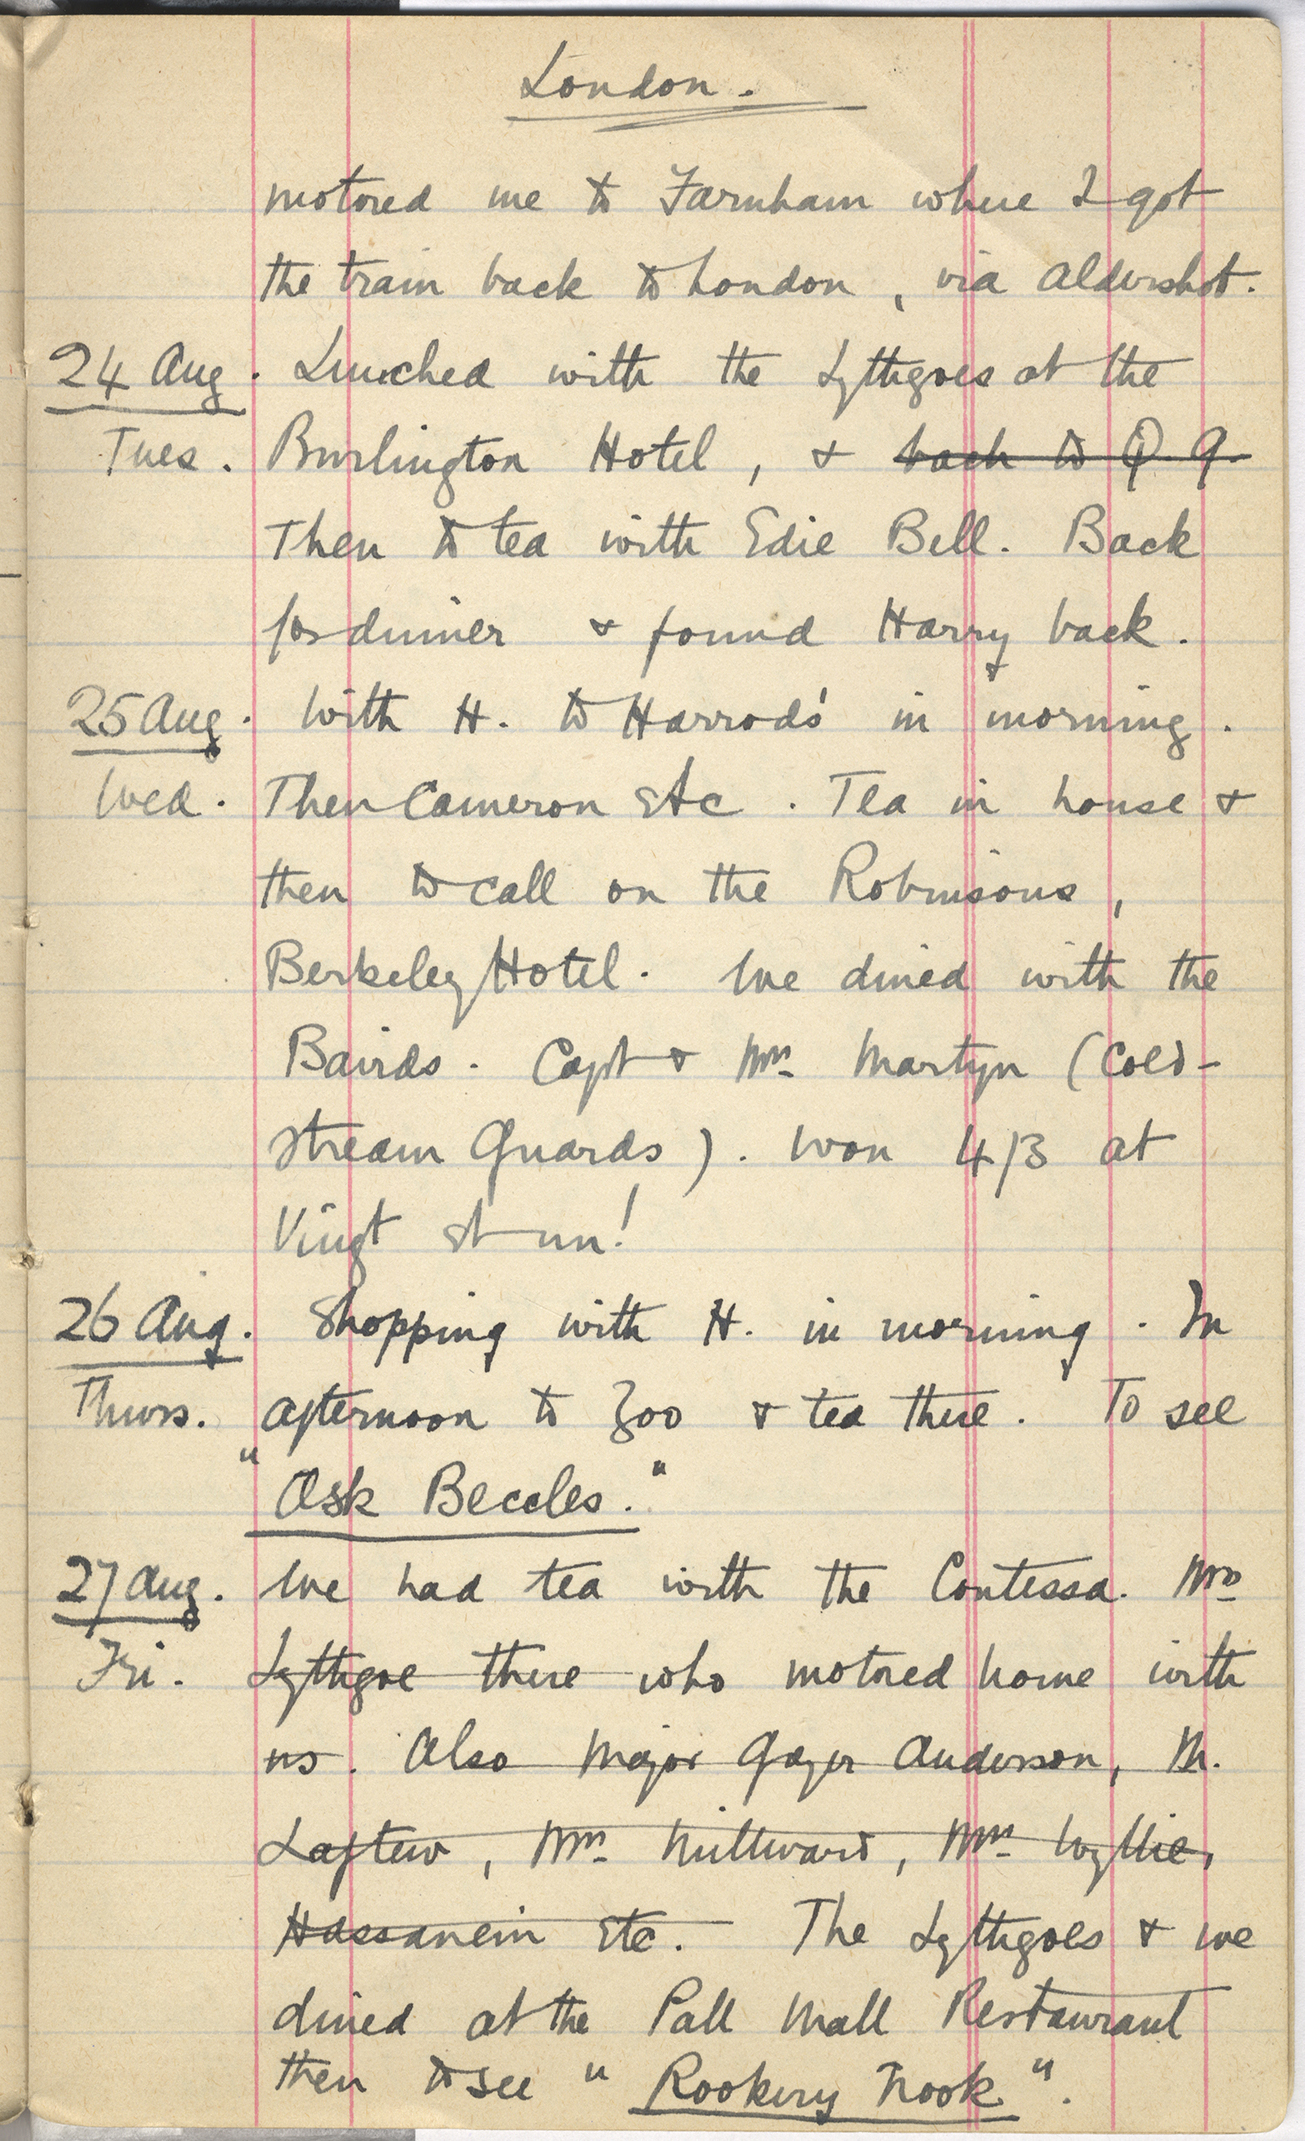 London.
motored me to Farnham where I got
the train back to London, via Aldershot.
24 Aug. Lunched with the Lythgoes at the
Tues. Burlington Hotel, & back to Q. G.
Then to tea with Edie Bell. Back
for dinner & found Harry back.
25 Aug. With H. to Harrods' in morning.
Wed. Then Cameron etc. Tea in house &
then to call on the Robinsons,
Berkeley Hotel. We dined with the
Bairds. Capt & Mrs. Martyn (Cold-
stream Guards). Won 4/3 at
Vingt et un!
26 Aug. Shopping with H. in morning. In
Thurs. afternoon to Zoo & tea there. To see
"Ask Beccles."
27 Aug. We had tea with the Contessa. Mrs
Fri. Lythgoe there who motored home with
us. Also Major Gayer Anderson, M.
Mrs. Millward, Mrs. Wyllie,
Hassanein etc. The Lythgoes & we
dined at the Pall Mall Restaurant
then to see "Rookery Nook".